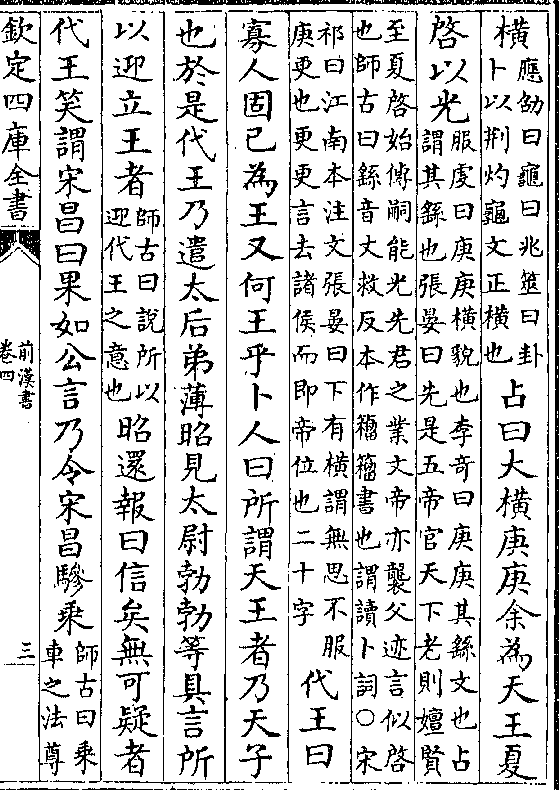 橫應劭曰龜曰兆筮曰卦卜以荆灼龜文正橫也占曰大橫庚庚余為天王夏
啓以光服虔曰庚庚橫貌也李奇曰庚庚其繇文也占謂其繇也張晏曰先是五帝官天下老則嬗賢
至夏啓始傳嗣能光先君之業文帝亦襲父迹言似啓也師古曰繇音丈救反本作籕籕書也謂讀卜詞○宋
祁曰江南本注文張晏曰下有橫謂無思不服庚更也更更言去諸侯而即帝位也二十字代王曰
寡人固已為王又何王乎卜人曰所謂天王者乃天子
也於是代王乃遣太后弟薄昭見太尉勃勃等具言所
以迎立王者師古曰說所以迎代王之意也昭還報曰信矣無可疑者
代王笑謂宋昌曰果如公言乃令宋昌驂乘師古曰乘車之法尊
欽定四庫全書
前漢書
卷四
三